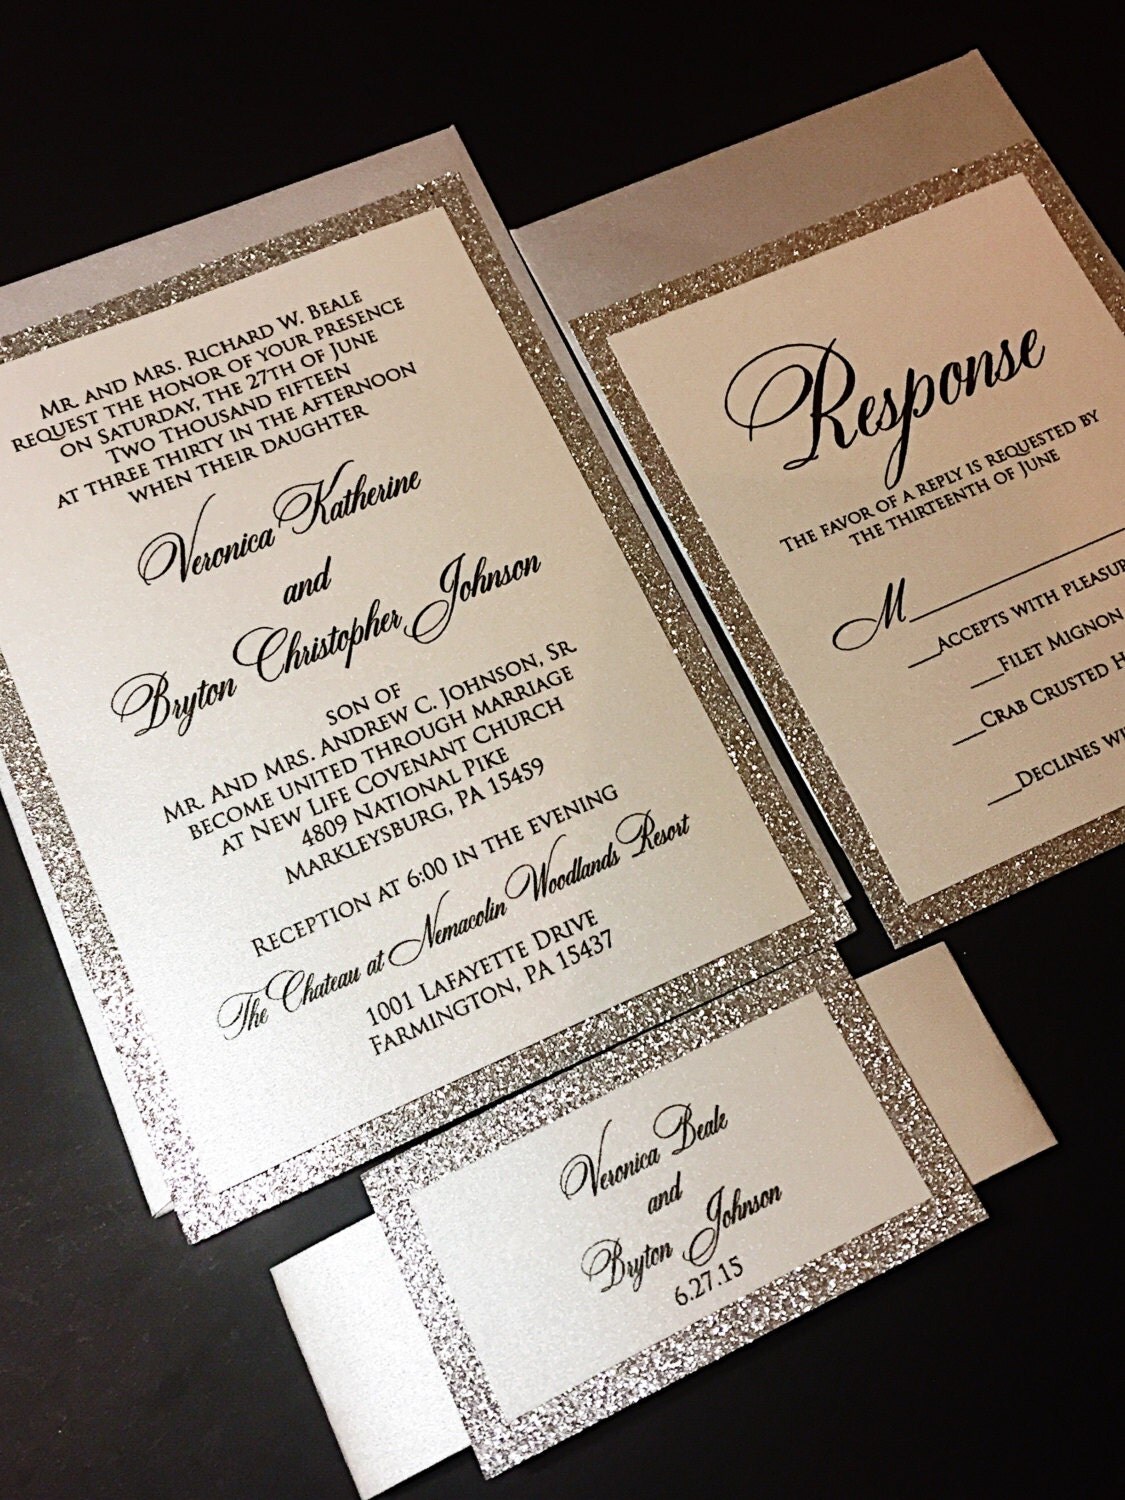 Mr. and Mrs. Richard W. Beale
request the honor of your presence
on Saturday, the 27th of June
Two Thousand Fifteen
at three thirty in the afternoon
when their daughter
Veronica Katherine
and
Bryton Christopher Johnson
son of
Mr. and Mrs. Andrew C. Johnson, Sr.
become united through marriage
at New Life Covenant Church
4809 National Pike
Markleysburg, PA 15459
Reception at 6:00 in the evening
The Chateau at Nemacolin Woodlands Resort
1001 Lafayette Drive
Farmington, PA 15437
Response
The favor of a reply is requested by
the thirteenth of June
M
Accepts with
Filet Mignon
Crab Crusted
Declines
Veronica Beale
and
Bryton Johnson
6.27.15